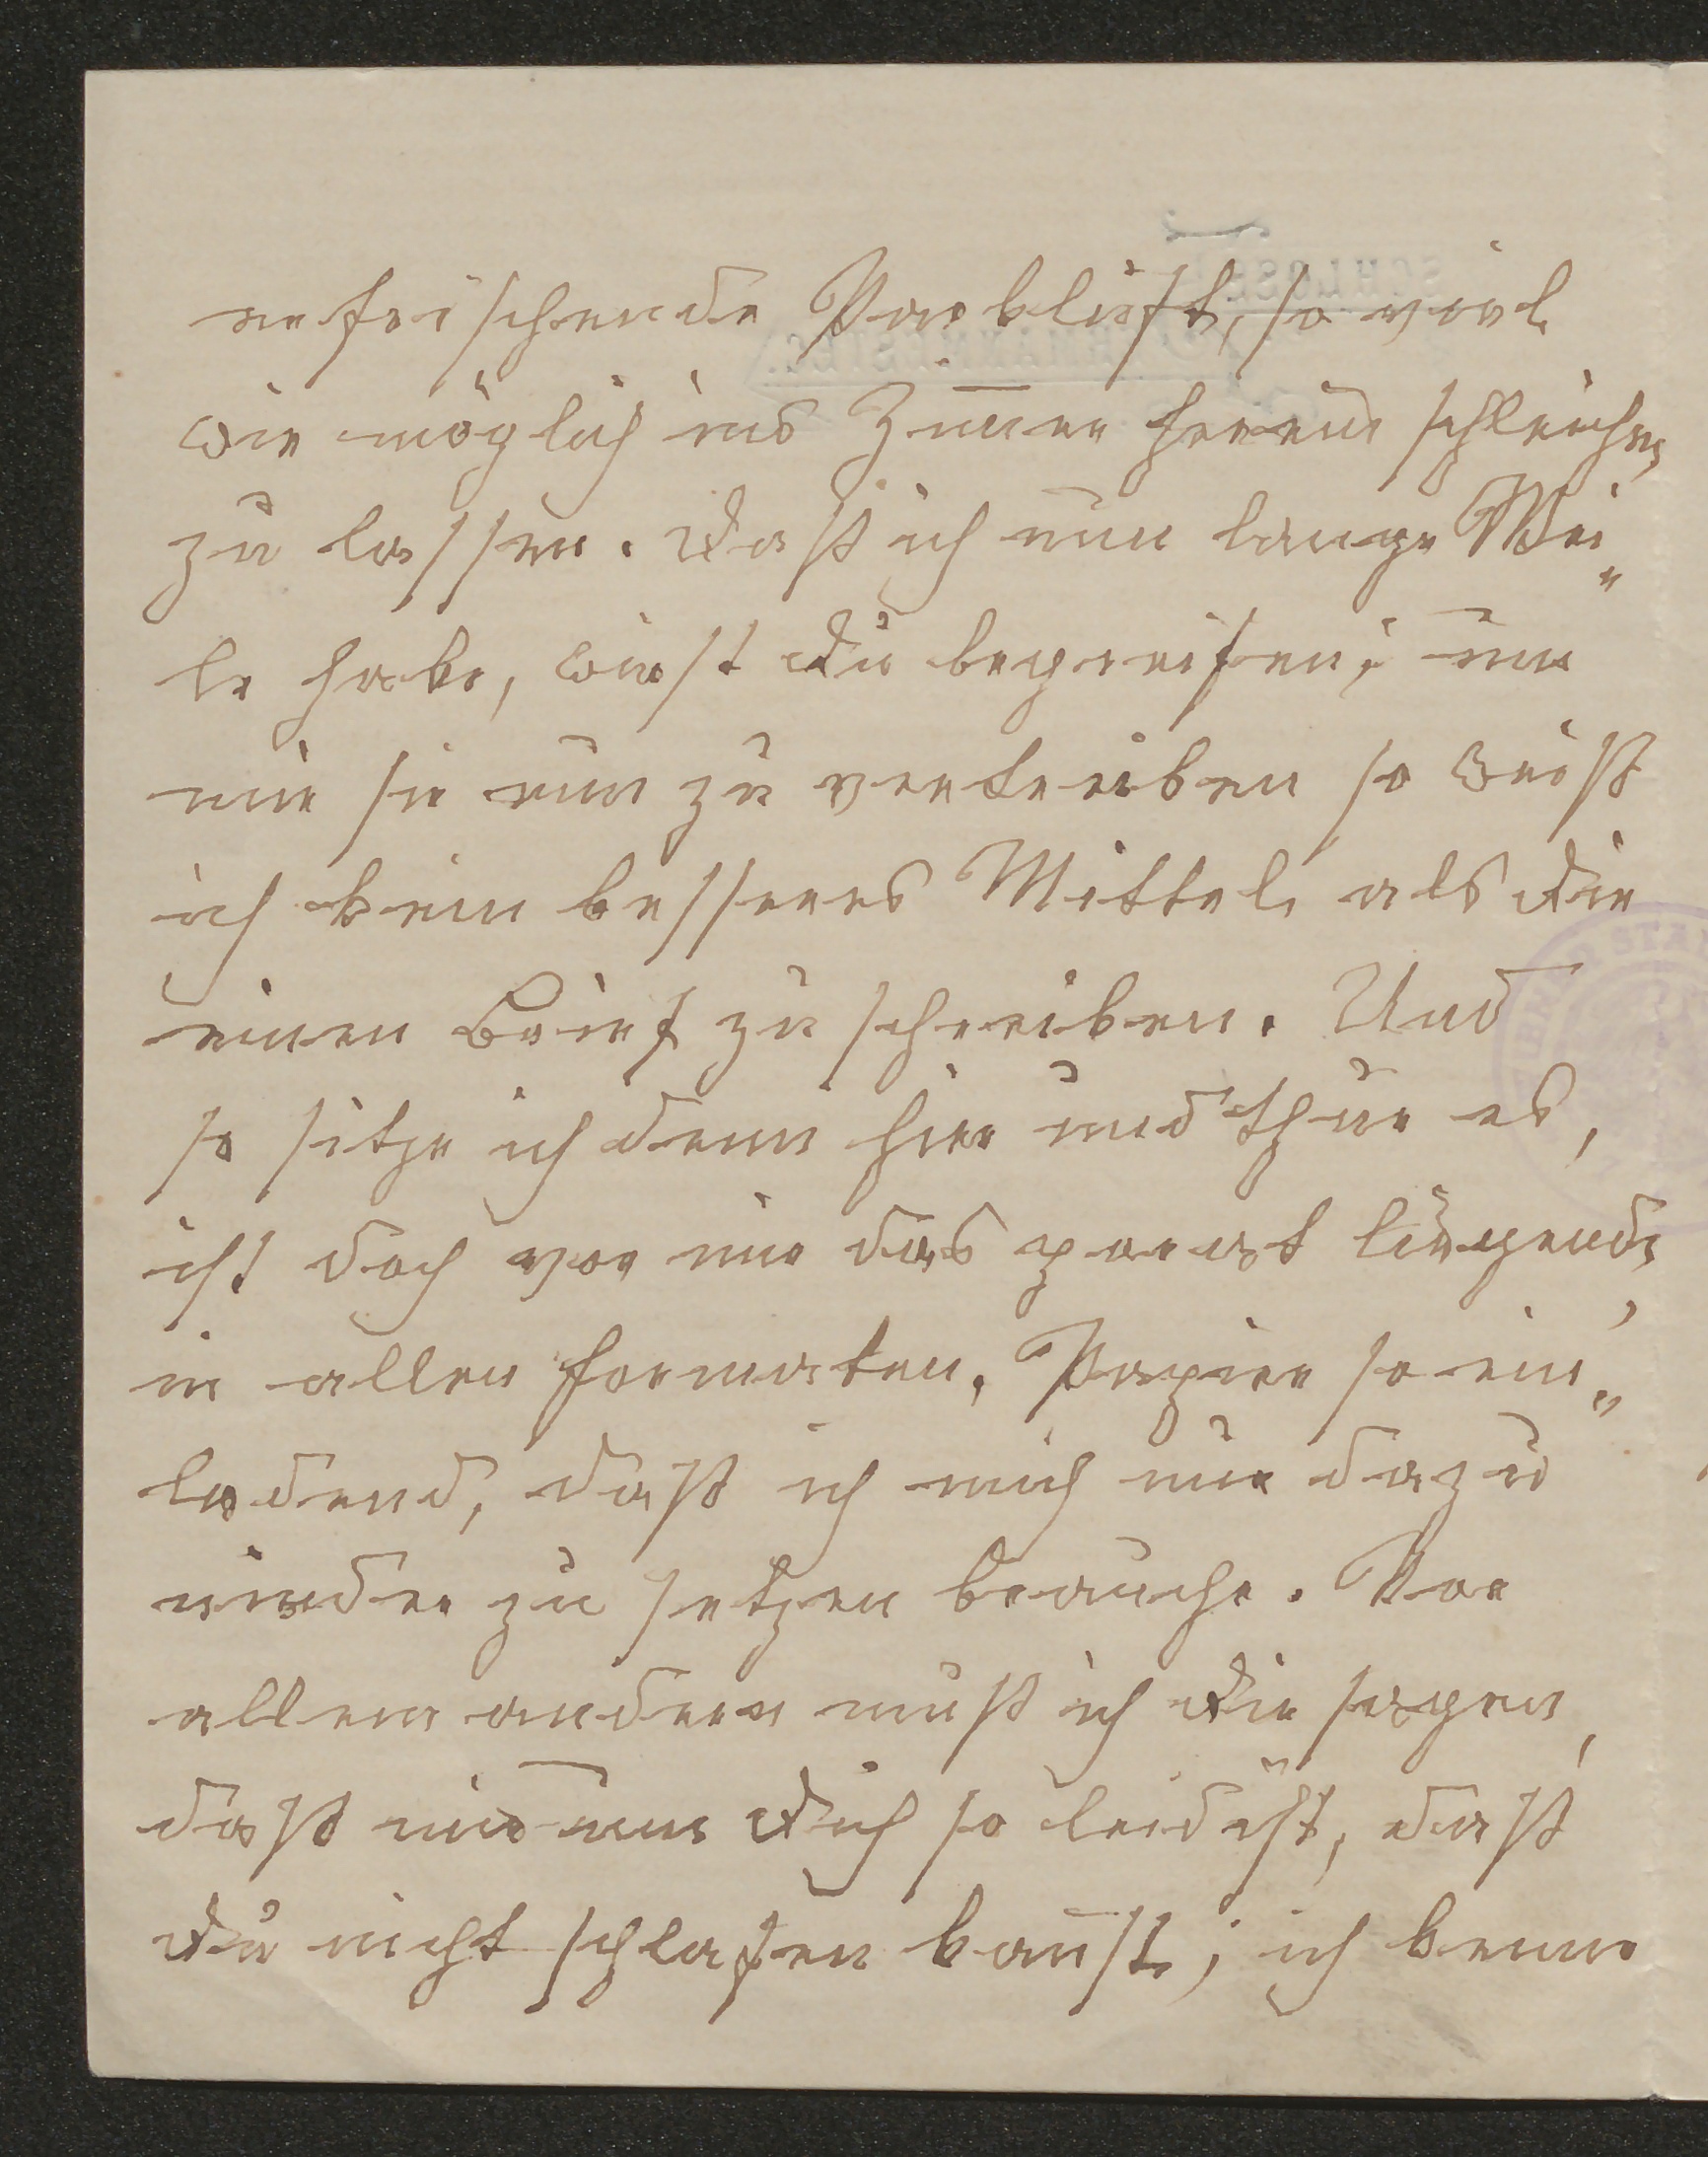 erfrischende Parkluft, so viel
wie möglich ins Zim̅er herein schleichen
zu lassen. Daß ich nun lange Wei„
le habe, wirst Du begreifen; um
mir sie nun zu vertreiben so weiß
ich kein besseres Mittel, als Dir
einen Brief zu schreiben. Und
so sitze ich denn hier und thue es,
ist doch vor mir das parat liegende,
in allen Formaten, Papier so ein„
ladend, daß ich mich nur dazu
nieder zu setzen brauche. Vor
allem andern muß ich Dir sagen,
daß mir um Dich so leid ist, daß
Du nicht schlafen kan̅st; ich kenne